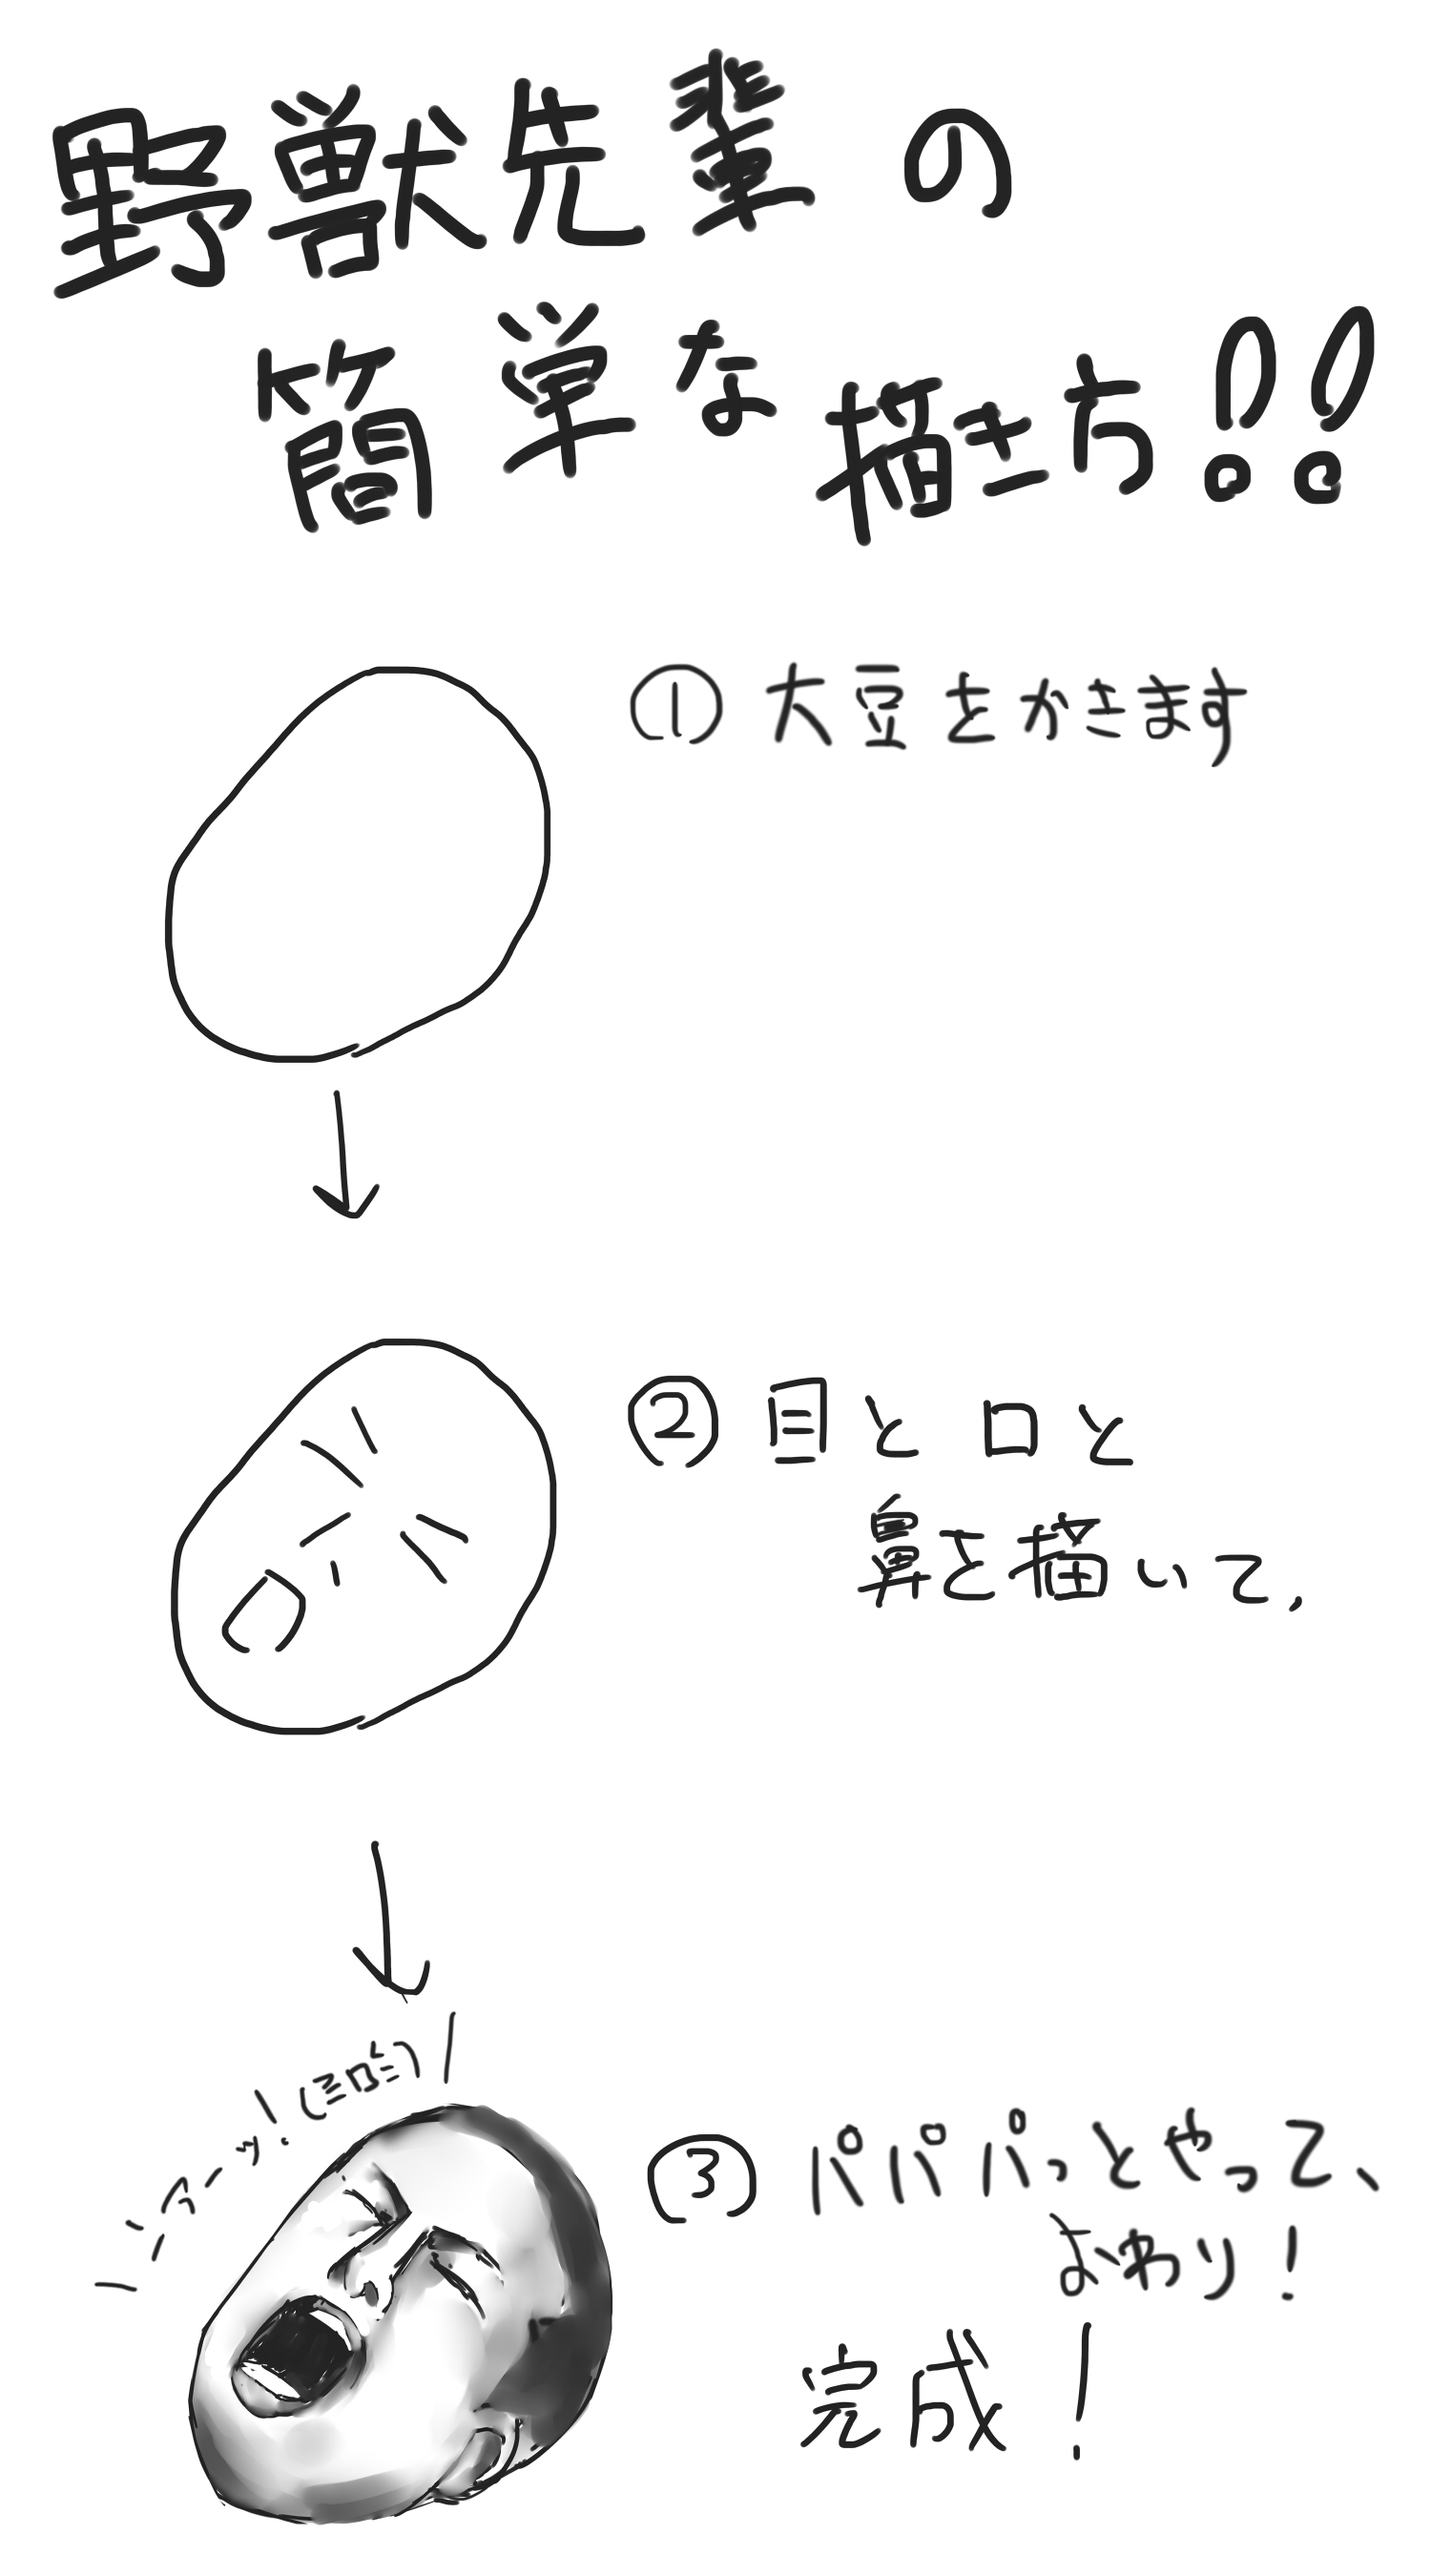 野獣先輩の
簡単な描き方!!
① 大豆をかきます
② 目と口と
鼻を描いて,
ンアーッ!(≡ロ≡)
③ パパパっとやって、
おわり!
完成!